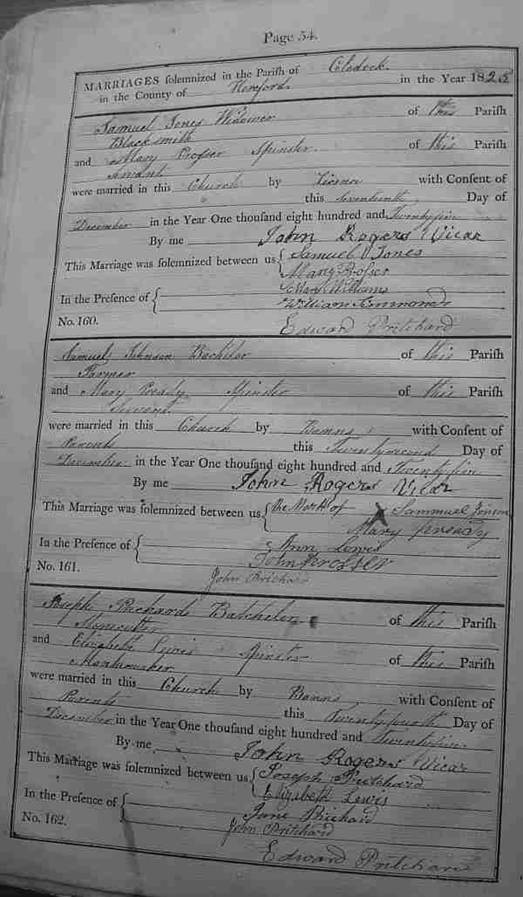 Page 54.
MARRIAGES solemnized in the Parish of Clodock
in the County of Hereford in the Year 1825
Samuel Jones Widower of this Parish
Blacksmith
and Mary Prosser Spinster of this Parish
Servant
were married in this Church by License with Consent of
this Seventeenth Day of
December in the Year One thousand eight hundred and Twentyfive
By me John Rogers Vicar
This Marriage was solemnized between us Samuel Jones
Mary Prosser
In the Presence of Mary Williams
William
No. 160. Edward Pritchard
Samuel Johnson Bachelor of this Parish
Farmer
and Mary Pready Spinster of this Parish
were married in this Church by Banns with Consent of
Parents this Twentysecond Day of
December in the Year One thousand eight hundred and Twentyfive
By me John Rogers Vicar
This Marriage was solemnized between us the Mark of X Sammuel
Mary Pready
In the Presence of Ann Lewis
John Prosser
No. 161. John Prichard
Joseph Prichard Batchelor of this Parish
and Elizabeth Lewis Spinster of this Parish
were married in this Church by Banns with Consent of
Parents this Twentyfourth Day of
December in the Year One thousand eight hundred and Twentyfive
By me John Rogers Vicar
This Marriage was solemnized between us Joseph Pritchard
Elizabeth Lewis
In the Presence of Jane Prichard
John Pritchard
No. 162. Edward Pritchard